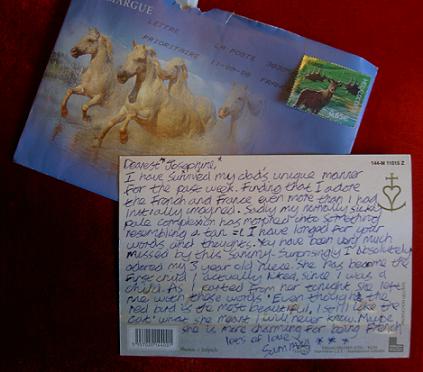 MARGUE
LETTRE
PRIORITAIRE
LA POSTE
11-09-08 FRANCE
144-M 11015 Z
Dearest "Josephine,"
I have survived my dads unique manner
for the past week. Finding that I adore
the French and France even more than I had
initially imagined. Sadly my normally
pale complexion has morphed into something
resembling a tan =( I have longed for your
words and thoughts. You have been very much
missed by this Sammy. Surprisingly I absolutely
adored my 3 year old niece. She has become the
first child I actually liked, since I was a
child. As I parted from her tonight she left
me with these words "Even though the
red bird is the most beautiful, I still like the
cat" what she meant I will never know. Maybe
she is more charming for being French
lots of love
Sammy